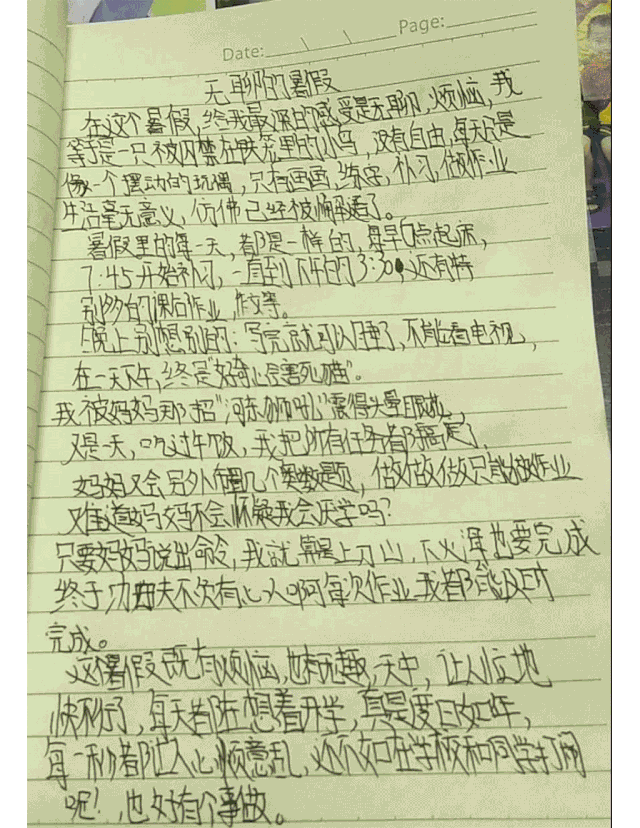 Date: Page:
无聊的暑假
在这个暑假,给我最深的感受是无聊,烦恼,我
等于是一只被囚禁在铁笼里的小鸟,没有自由,每天只是
像一个摆动的玩偶,只有画画,练字,补习,做作业
生活毫无意义,仿佛已经被解释了。
暑假里的每一天,都是一样的,每早6点起床,
7:45开始补习,一直到下午的3:30,还有特
别多的课后作业,作文等。
晚上别想别的:写完就可以睡了,不能看电视,
在一天下午,终是"好奇心总害死猫"。
我被妈妈那招"河东狮吼"震得头晕眼花,
又是一天,吃过午饭,我把所有任务都搞定了,
妈妈又会另外布置几个奥数题,做做做只能做作业
难道妈妈不会怀疑我会厌学吗?
只要妈妈说出命令,我就算是上刀山,下火海也要完成
终于功夫不负有心人啊每次作业我都能及时
完成。
这个暑假既有烦恼,也有无趣,天中,让人心
快利了,每天都在想着开学,真是度日如年,
每一秒都让人心烦意乱,还不如在学校和同学打闹
呢!也好有个事做。